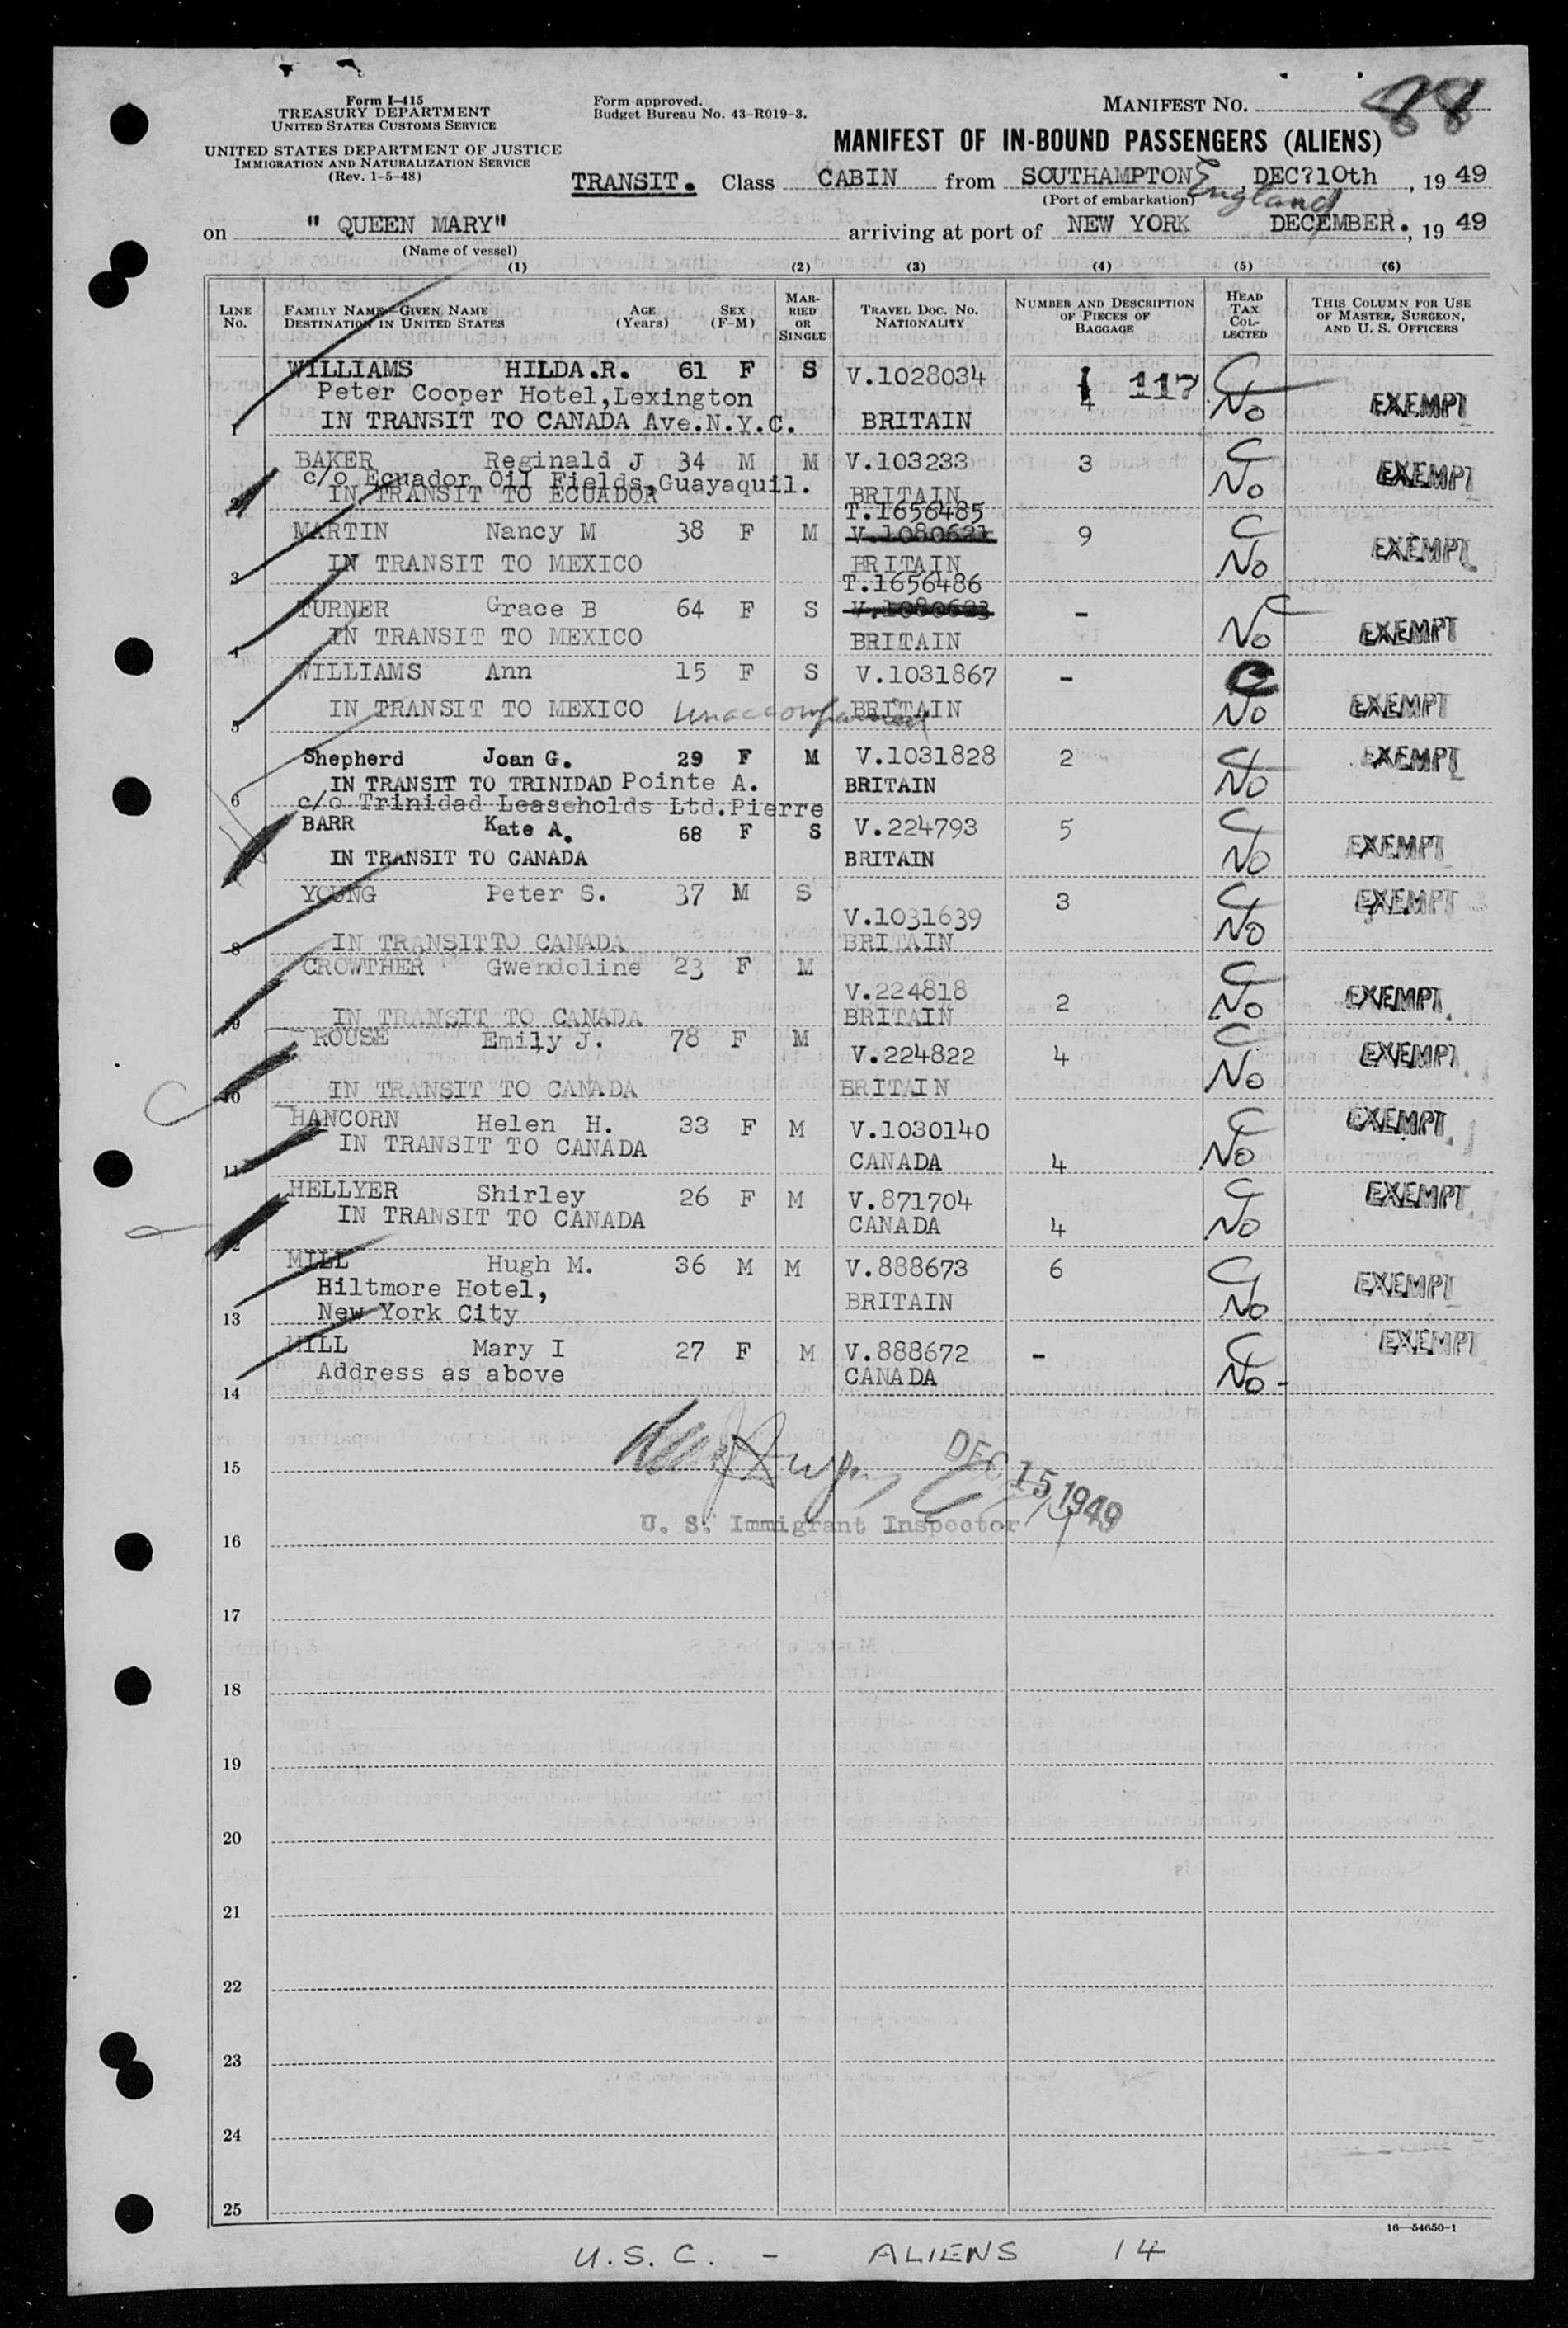 Form I-415
TREASURY DEPARTMENT
UNITED STATES CUSTOMS SERVICE
UNITED STATES DEPARTMENT OF JUSTICE
IMMIGRATION AND NATURALIZATION SERVICE
(Rev. 1-5-48)
Form approved.
Budget Bureau No. 43-R019-3.
MANIFEST NO. 88
MANIFEST OF IN-BOUND PASSENGERS (ALIENS)
TRANSIT. Class CABIN from SOUTHAMPTON England, DEC?10th, 19 49
(Port of embarkation)
on " QUEEN MARY" arriving at port of NEW YORK DECEMBER., 19 49
(Name of vessel)
(1) (2) (3) (4) (5) (6)
LINE No. FAMILY NAME—GIVEN NAME DESTINATION IN UNITED STATES AGE (Years) SEX (F-M) MARRIED OR SINGLE TRAVEL DOC. NO. NATIONALITY NUMBER AND DESCRIPTION OF PIECES OF BAGGAGE HEAD TAX COLLECTED THIS COLUMN FOR USE OF MASTER, SURGEON, AND U. S. OFFICERS
WILLIAMS HILDA.R. 61 F S V.1028034 4 117 C
Peter Cooper Hotel,Lexington No EXEMPT
1 IN TRANSIT TO CANADA Ave.N.Y.C. BRITAIN
BAKER Reginald J 34 M M V.103233 3 C
c/o Ecuador Oil Fields,Guayaquil.
2 IN TRANSIT TO ECUADOR BRITAIN No EXEMPT
T.1656485
MARTIN Nancy M 38 F M V.1080621 9 C
3 IN TRANSIT TO MEXICO BRITAIN No EXEMPT
T.1656486
TURNER Grace B 64 F S V.1080623 - C
4 IN TRANSIT TO MEXICO BRITAIN No EXEMPT
WILLIAMS Ann 15 F S V.1031867 - C
5 IN TRANSIT TO MEXICO Unaccompanied BRITAIN No EXEMPT
Shepherd Joan G. 29 F M V.1031828 2 C EXEMPT
IN TRANSIT TO TRINIDAD Pointe A. BRITAIN No
6 c/o Trinidad Leaseholds Ltd.Pierre
BARR Kate A. 68 F S V.224793 5 C EXEMPT
IN TRANSIT TO CANADA BRITAIN No
YOUNG Peter S. 37 M S V.1031639 3 C EXEMPT
8 IN TRANSIT TO CANADA BRITAIN No
CROWTHER Gwendoline 23 F M V.224818 2 C EXEMPT
9 IN TRANSIT TO CANADA BRITAIN No
ROUSE Emily J. 78 F M V.224822 4 C EXEMPT
10 IN TRANSIT TO CANADA BRITAIN No
HANCORN Helen H. 33 F M V.1030140 C EXEMPT
11 IN TRANSIT TO CANADA CANADA 4 No
HELLYER Shirley 26 F M V.871704 C EXEMPT
12 IN TRANSIT TO CANADA CANADA 4 No
MILL Hugh M. 36 M M V.888673 6 C EXEMPT
Biltmore Hotel, BRITAIN No
13 New York City
MILL Mary I 27 F M V.888672 - C EXEMPT
Address as above CANADA No -
14
15 DEC 15 1949
U. S. Immigrant Inspector
16
17
18
19
20
21
22
23
24
25
16—54650-1
U.S.C. - ALIENS 14